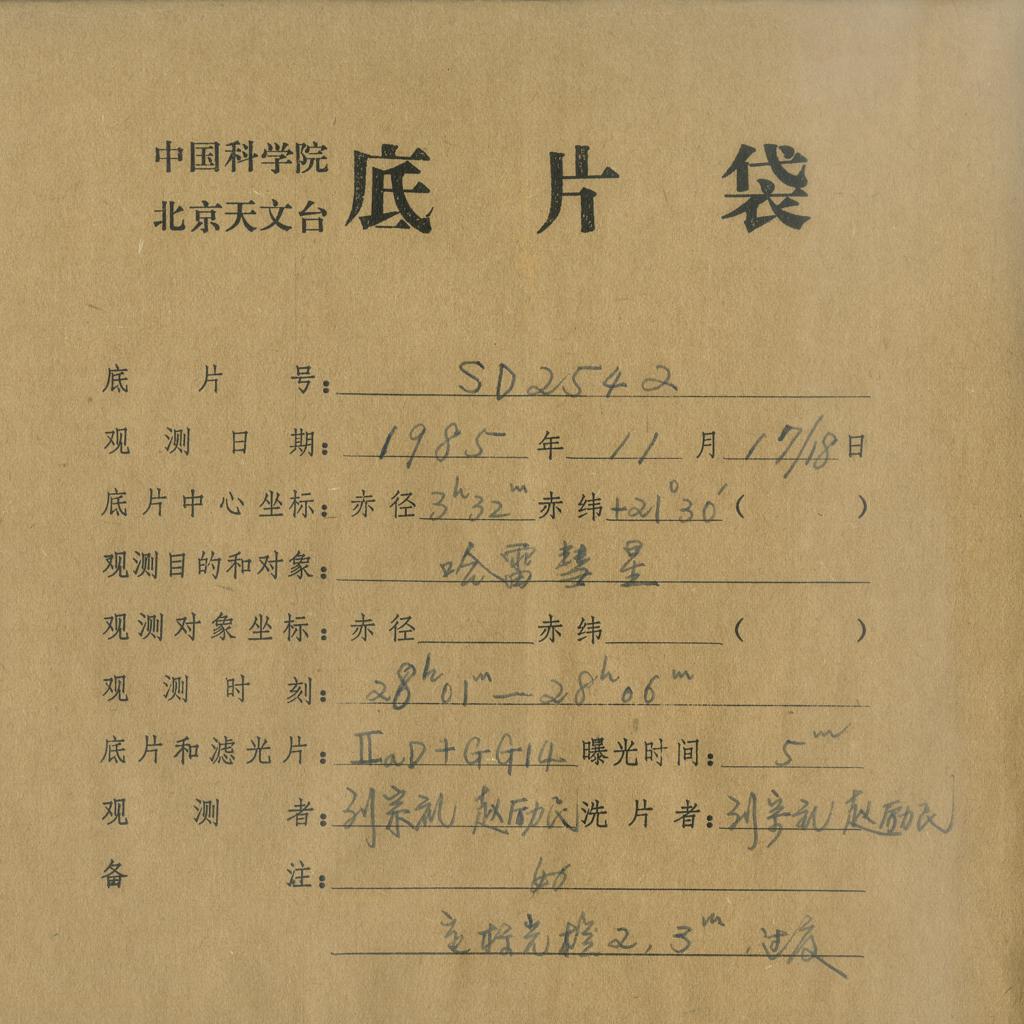 中国科学院
北京天文台
底片袋
底片号: SD2542
观测日期: 1985年11月17/18日
底片中心坐标: 赤径3h32m赤纬+21°30′( )
观测目的和对象: 哈雷彗星
观测对象坐标: 赤径 赤纬 ( )
观测时刻: 28h01m—28h06m
底片和滤光片: ⅡaD+GG14 曝光时间: 5m
观测者: 刘宗礼 赵励民 洗片者: 刘宗礼 赵励民
备注:
定标光楔2, 3m, 过度